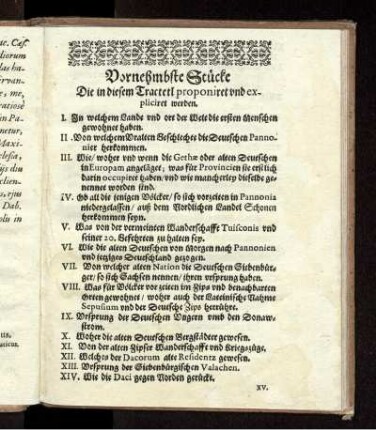 Vornehmbste Stücke
Die in diesem Tractetl proponiret vnd ex-
pliciret werden.
I. In welchem Lande vnd ort der Welt die ersten Menschen
gewohnet haben.
II. Von welchem Vralten Geschlechte die Deutschen Panno-
nier herkommen.
III. Wie/ woher vnd wenn die Gethæ oder alten Deutschen
in Europam angelanget; was für Provincien sie erstlich
darin occupiret haben/ vnd wie mancherley dieselbe ge-
nennet worden sind.
IV. Ob all die jenigen Völcker/ so sich vorzeiten in Pannonia
niedergelassen/ auß dem Nordlichen Landel Schonen
herkommen seyn.
V. Was von der vermeinten Wanderschafft Tuisconis vnd
seiner 20. Gefehrten zu halten sey.
VI. Wie die alten Deutschen von Morgen nach Pannonien
vnd jetziges Deutschland gezogen.
VII. Von welcher alten Nation die Deutschen Siebenbür-
ger/ so sich Sachsen nennen/ ihren vrsprung haben.
VIII. Was für Völcker vor zeiten im Zips vnd benachbarten
Orten gewohnet/ woher auch der Lateinische Nahme
Sepusium vnd der Deutsche Zips herrühre.
IX. Vrsprung der Deutschen Vngern vnd den Donaw-
strom.
X. Woher die alten Deutschen Bergstädter gewesen.
XI. Von der alten Zipser Wanderschafft vnd Kriegszüge.
XII. Welches der Dacorum alte Residentz gewesen.
XIII. Vrsprung der Siebenbürgischen Valachen.
XIV. Wie die Daci gegen Norden gerückt.
XV.